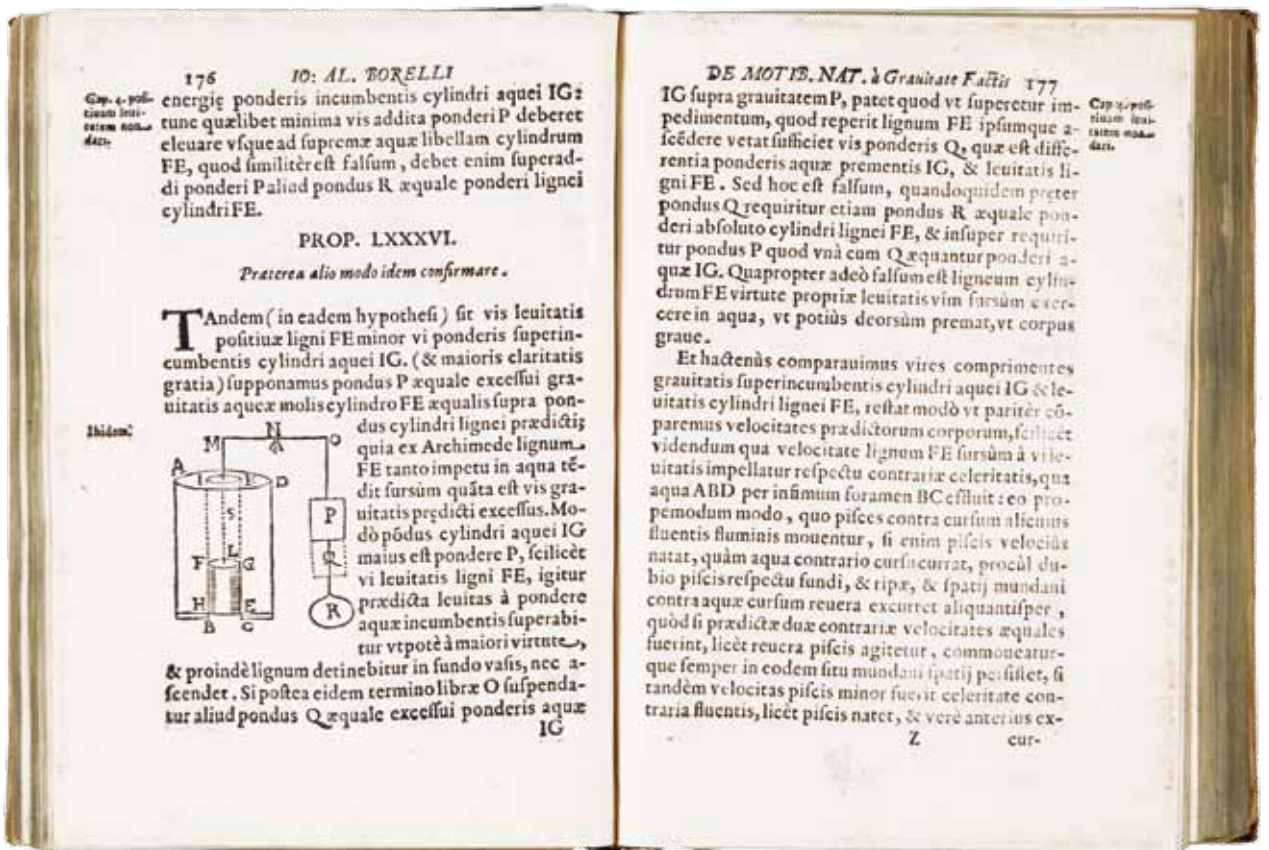 176 IO: AL. BORELLI
Cap. 4. posi-
tiuam leui-
tatem non
dari.
energię ponderis incumbentis cylindri aquei IG:
tunc quælibet minima vis addita ponderi P deberet
eleuare vſque ad ſupremæ aquæ libellam cylindrum
FE, quod ſimilitèr eſt falſum, debet enim ſuperad-
di ponderi P aliud pondus R æquale ponderi lignei
cylindri FE.
PROP. LXXXVI.
Præterea alio modo idem confirmare.
TAndem (in eadem hypotheſi) ſit vis leuitatis
poſitiuæ ligni FE minor vi ponderis ſuperin-
cumbentis cylindri aquei IG. (& maioris claritatis
gratia) ſupponamus pondus P æquale exceſſui gra-
uitatis aqueæ molis cylindro FE æqualis ſupra pon-
Ibidem.
dus cylindri lignei prædicti;
quia ex Archimede lignum
FE tanto impetu in aqua tē-
dit ſursùm quāta eſt vis gra-
uitatis prędicti exceſſus. Mo-
dò pōdus cylindri aquei IG
maius eſt pondere P, ſcilicèt
vi leuitatis ligni FE, igitur
prædicta leuitas à pondere
aquæ incumbentis ſuperabi-
tur vtpotè à maiori virtute,
M N O
A I D
S
P
L
F G
Q
H E
R
B C
& proindè lignum detinebitur in fundo vaſis, nec a-
ſcendet. Si poſtea eidem termino libræ O ſuſpenda-
tur aliud pondus Q æquale exceſſui ponderis aquæ
IG
DE MOTIB. NAT. à Grauitate Factis 177
Cap. 4. poſi-
tiuam leui-
tatem non
dari.
IG ſupra grauitatem P, patet quod vt ſuperetur im-
pedimentum, quod reperit lignum FE ipſumque a-
ſcēdere vetat ſufficiet vis ponderis Q, quæ eſt diffe-
rentia ponderis aquæ prementis IG, & leuitatis li-
gni FE. Sed hoc eſt falſum, quandoquidem pręter
pondus Q requiritur etiam pondus R æquale pon-
deri abſoluto cylindri lignei FE, & inſuper requiri-
tur pondus P quod vnà cum Q æquantur ponderi a-
quæ IG. Quapropter adeò falſum eſt ligneum cylin-
drum FE virtute propriæ leuitatis vim ſursùm exer-
cere in aqua, vt potiùs deorsùm premat, vt corpus
graue.
Et hactenùs comparauimus vires comprimentes
grauitatis ſuperincumbentis cylindri aquei IG & le-
uitatis cylindri lignei FE, reſtat modò vt paritèr cō-
paremus velocitates prædictorum corporum, ſcilicèt
videndum qua velocitate lignum FE ſursùm à vi le-
uitatis impellatur reſpectu contrariæ celeritatis, qua
aqua ABD per infimum foramen BC effluit: eo pro-
pemodum modo, quo piſces contra curſum alicuius
fluentis fluminis mouentur, ſi enim piſcis velociùs
natat, quàm aqua contrario curſu currat, procùl du-
bio piſcis reſpectu fundi, & ripæ, & ſpatij mundani
contra aquæ curſum reuera excurret aliquantiſper,
quòd ſi prædictæ duæ contrariæ velocitates æquales
fuerint, licèt reuera piſcis agitetur, commoueatur-
que ſemper in eodem ſitu mundani ſpatij perſiſtet, ſi
tandèm velocitas piſcis minor fuerit celeritate con-
traria fluentis, licèt piſcis natet, & verè anterius ex-
Z cur-